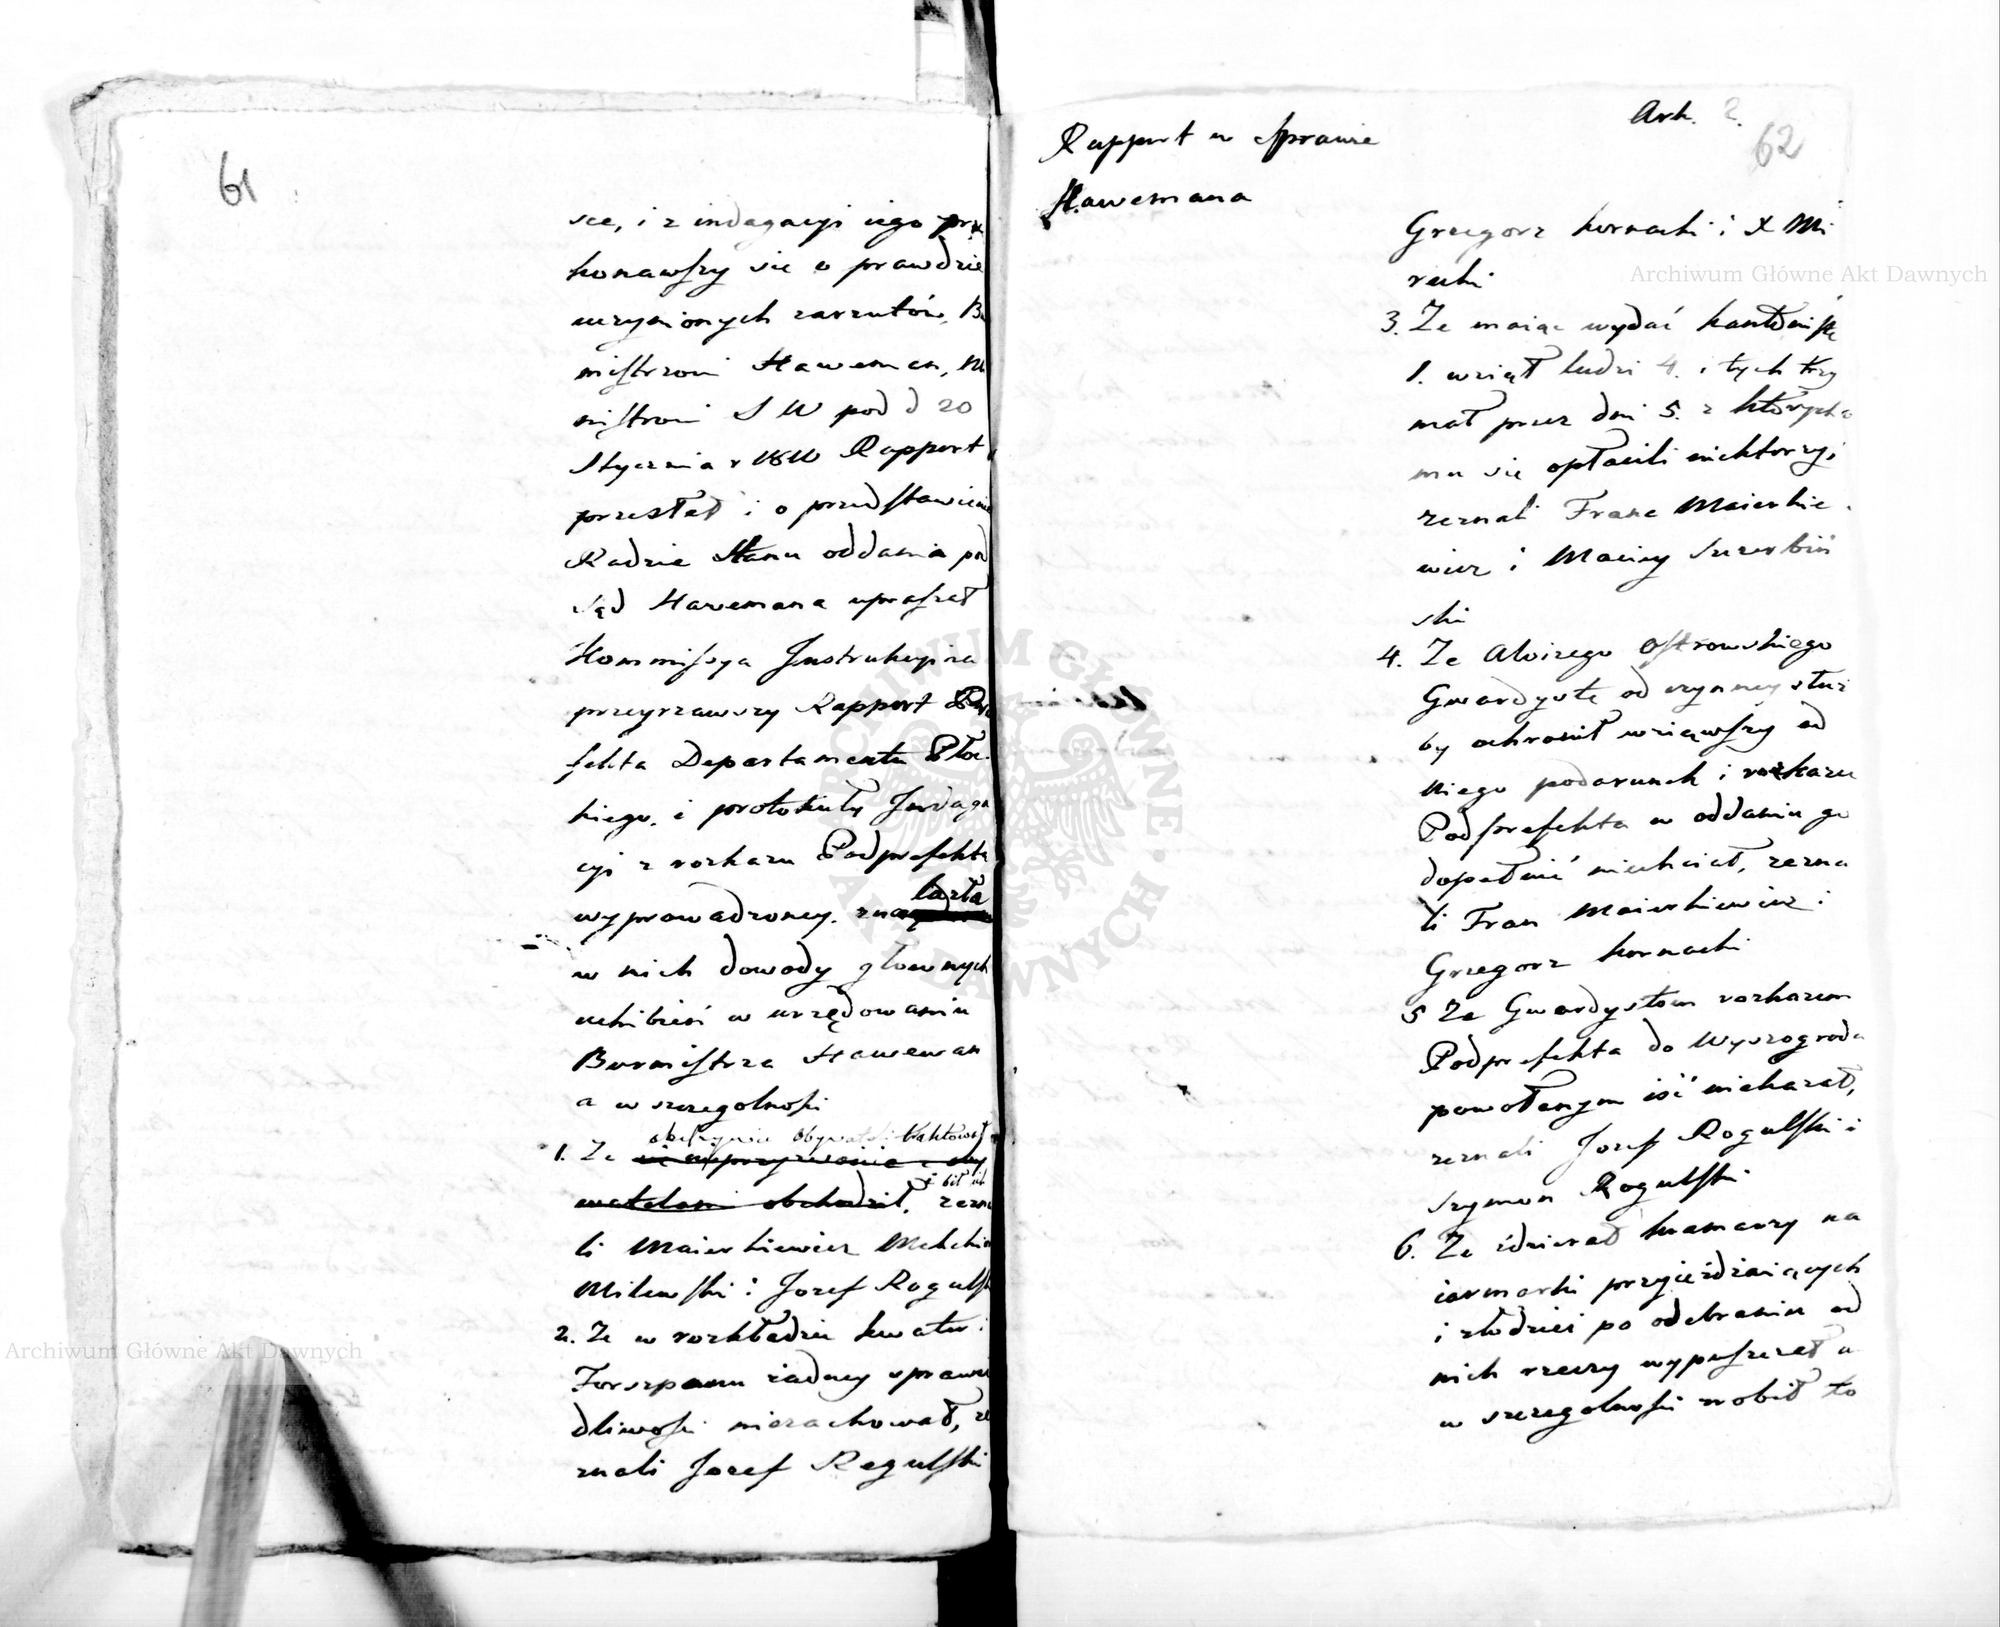 61
sce, i z indagacyi iego prze
konawszy sie o prawdzie
uczynionych zarzutów, Bu
mistrzowi Haweman, Mi
nistrowi S W pod d 20
Stycznia r 1811 Rapport
przesłał i o przedstawienie
Radzie Stanu oddania pod
sąd Hawemana upraszał
Kommissya Instrukcyina
przeyrzawszy Rapport Pre
fekta Departamentu Płoc
kiego. i protokuły Indaga
cyi z rozkazu Podprefekta
lazła
wyprowadzoney. zna
w nich dowody głownych
uchibień w urzędowaniu
Burmistrza Haweman
a w szczegolnosci
obelżywie Obywateli traktował
1. Ze
i bił ich
obchodził, zezna
li Maierkiewicz Melchior
Milewski i Jozef Rogulski
2. Ze w rozkładzie kwater i
Forszpanu żadney sprawie
dliwosci niezachował, ze
znali Jozef Rogulski
Rapport w Sprawie
Hawemana
Ark. 2.
62
Grzegorz Kornacki i X Mi
recki
3. Ze maiąc wydać kantonistę
1. wziął ludzi 4. i tych trzy
mał przez dni 5. z których
mu sie opłacili niektorzy,
zeznali Franc Maierkie
wicz i Maciey Szczerbiń
ski
4. Ze Aloizego Ostrowskiego
Gwardystę od czynney służ
by ochronił wziąwszy od
niego podarunek i rozkazu
Podprefekta w oddaniu go
dopełnić niechciał, zezna
li Fran Maierkiewicz i
Grzegorz Kornacki
5 Ze Gwardystom rozkazem
Podprefekta do Wyszogroda
powołanym iść niekazał,
zeznali Jozef Rogulski i
Szymon Rogulski
6. Ze zdzierał kramarzy na
iarmarki przyieżdżaiących
i złodziei po odebraniu od
nich rzeczy wypuszczał a
w szczegolnosci zrobił to
Archiwum Główne Akt Dawnych
Archiwum Główne Akt Dawnych
ARCHIWUM GŁÓWNE AKT DAWNYCH